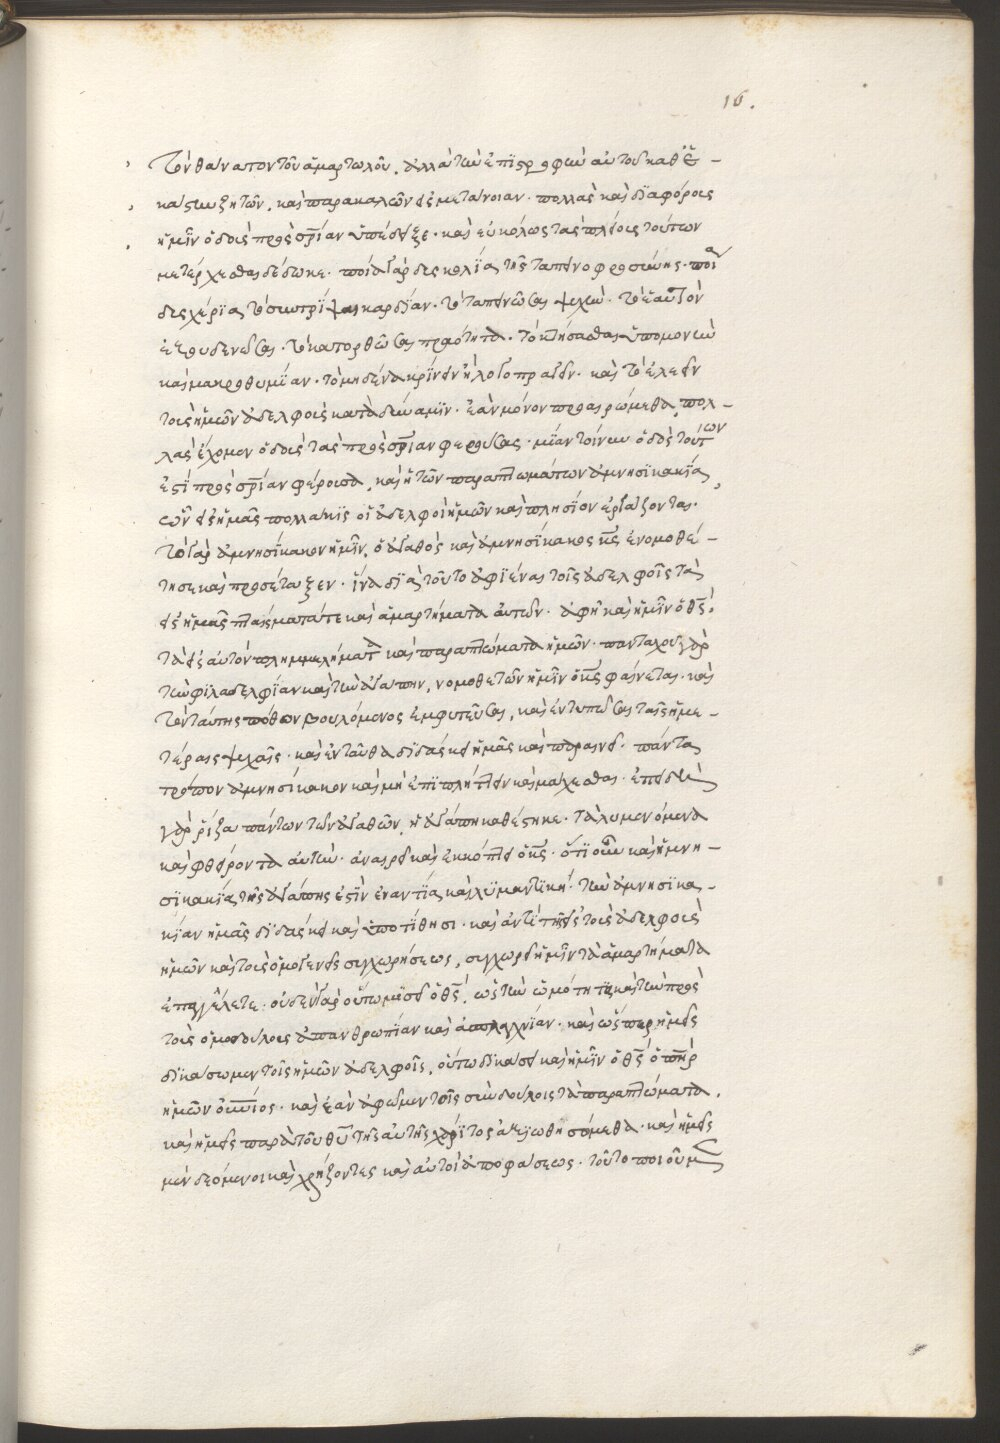 16.
τὸν θάνατον τοῦ ἁμαρτωλοῦ. ἀλλὰ τὴν ἐπιστροφὴν αὐτοῦ καθ' ἑ-
κάστην ζητῶν, καὶ παρακαλῶν εἰς μετάνοιαν. πολλὰς καὶ διαφόρους
ἡμῖν ὁδοὺς πρὸς σρίαν ὑπέδειξε. καὶ εὐκόλως τὰς πλείους τούτων
μετέρχεσθαι δέδωκε. ποία γὰρ δυσκολία τῆς ταπεινοφροσύνης. ποία
δυσχέρια τὸ συντρίψαι καρδίαν. τὸ ταπεινῶσαι ψυχήν. τὸ ἑαυτὸν
ἐξουδενῶσαι. τὸ κατορθῶσαι πραότητα. τὸ κτήσασθαι ὑπομονὴν
καὶ μακροθυμίαν. τὸ μηδένα κρίνειν ἢ λοιδορεῖν. καὶ τὸ ἐλεεῖν
τοὺς ἡμῶν ἀδελφοὺς κατὰ δύναμιν. ἐὰν μόνον προαιρώμεθα, πολ-
λὰς ἔχομεν ὁδοὺς τὰς πρὸς σρίαν φερούσας. μίαν τοίνυν ὁδὸς τούτων
ἐστὶ πρὸς σρίαν φέρουσα, καὶ ἡ τῶν παραπτωμάτων ἀμνησικακία,
ὧν εἰς ἡμᾶς πολλάκις οἱ ἀδελφοὶ ἡμῶν καὶ πλησίον ἐργάζονται.
τὸ γὰρ ἀμνησίκακον ἡμῖν, ὁ ἀγαθὸς καὶ ἀμνησίκακος κς ἐνομοθέ-
τησε καὶ προσέταξεν. ἵνα διὰ τοῦτο ἀφιέναι τοῖς ἀδελφοῖς τὰ
εἰς ἡμᾶς πταίσματά τε καὶ ἁμαρτήματα αὐτῶν. ἀφῇ καὶ ἡμῖν ὁ θς
τὰ εἰς αὐτὸν πλημμελήματα καὶ παραπτώματα ἡμῶν. πανταχοῦ γὰρ
τὴν φιλαδελφίαν καὶ τὴν ἀγάπην, νομοθετῶν ἡμῖν ὁ κς φαίνεται. καὶ
τὸν ταύτης πόθον βουλόμενος ἐμφυτεῦσαι, καὶ ἐντυπῶσαι ταῖς ἡμε-
τέραις ψυχαῖς. καὶ ἐνταῦθα διδάσκει ἡμᾶς καὶ παραινεῖ. πάντα
τρόπον ἀμνησίκακον καὶ μὴ ἐπιπλήττειν καὶ μάχεσθαι. ἐπειδὴ
γὰρ ῥίζα πάντων τῶν ἀγαθῶν, ἡ ἀγάπη καθέστηκε. τὰ λυμενόμενα
καὶ φθείροντα αὐτὴν. ἀναιρεῖ καὶ ἐκκόπτει ὁ κς. ὅτι οὖν καὶ ἡ μνη-
σικακία τῆς ἀγάπης ἐστὶν ἐναντία καὶ λυμαντική. τὴν ἀμνησικα-
κίαν ἡμᾶς διδάσκει καὶ ὑποτίθησι. καὶ ἀντὶ τῆς εἰς τοὺς ἀδελφοὺς
ἡμῶν καὶ τοὺς ὁμογενεῖς συγχωρήσεως, συγχωρεῖ ἡμῖν τὰ ἁμαρτήματα
ἐπαγγέλεται. οὐδὲν γὰρ οὕτω μισεῖ ὁ θς, ὡς τὴν ὠμότητα καὶ τὴν πρὸς
τοὺς ὁμοδούλους ἀπανθρωπίαν καὶ ἀσπλαγχνίαν. καὶ ὥσπερ ἡμεῖς
δικάσωμεν τοῖς ἡμῶν ἀδελφοῖς, οὕτω δικάσει καὶ ἡμῖν ὁ θς ὁ πηρ
ἡμῶν ὁ οὐνιος. καὶ ἐὰν ἀφῶμεν τοῖς συνδούλοις τὰ παραπτώματα,
καὶ ἡμεῖς παρὰ τοῦ θυ τῆς αὐτῆς χάριτος ἀξιωθησόμεθα. καὶ ἡμεῖς
μὲν δεόμενοι καὶ χρήζοντες καὶ αὐτοὶ ἀποφάσεως. τοῦτο ποιοῦμεν